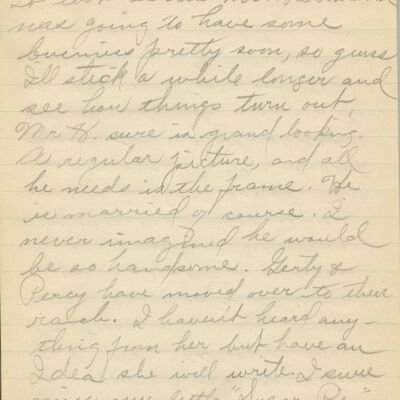 was going to have some
business pretty soon, so guess
I'll stick a while longer and
see how things turn out.
Mr H. sure is grand looking.
A regular picture, and all
he needs is the frame. He
is married of course. I
never imagined he would
be so handsome. Gerty &
Percy have moved over to their
ranch. I haven't heard any-
thing from her but have an
Idea she will write. I sure